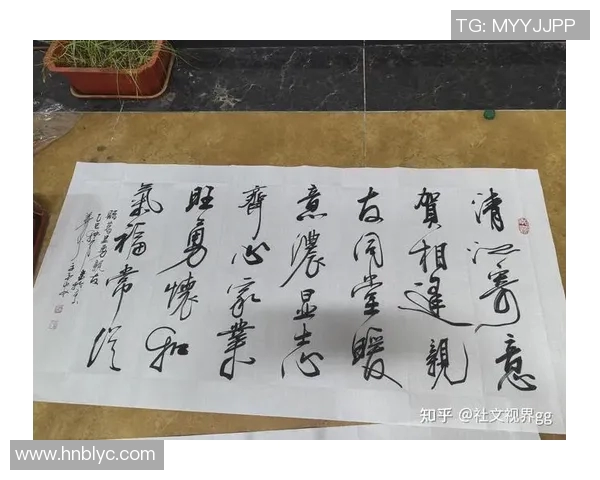 TG: MYYJJPP
清江寄意
賀相逢親
友同堂暖
意濃显志
齊心家業
旺勇懷和
氣福常從
知乎 @社文视界gg
www.hnblyc.com